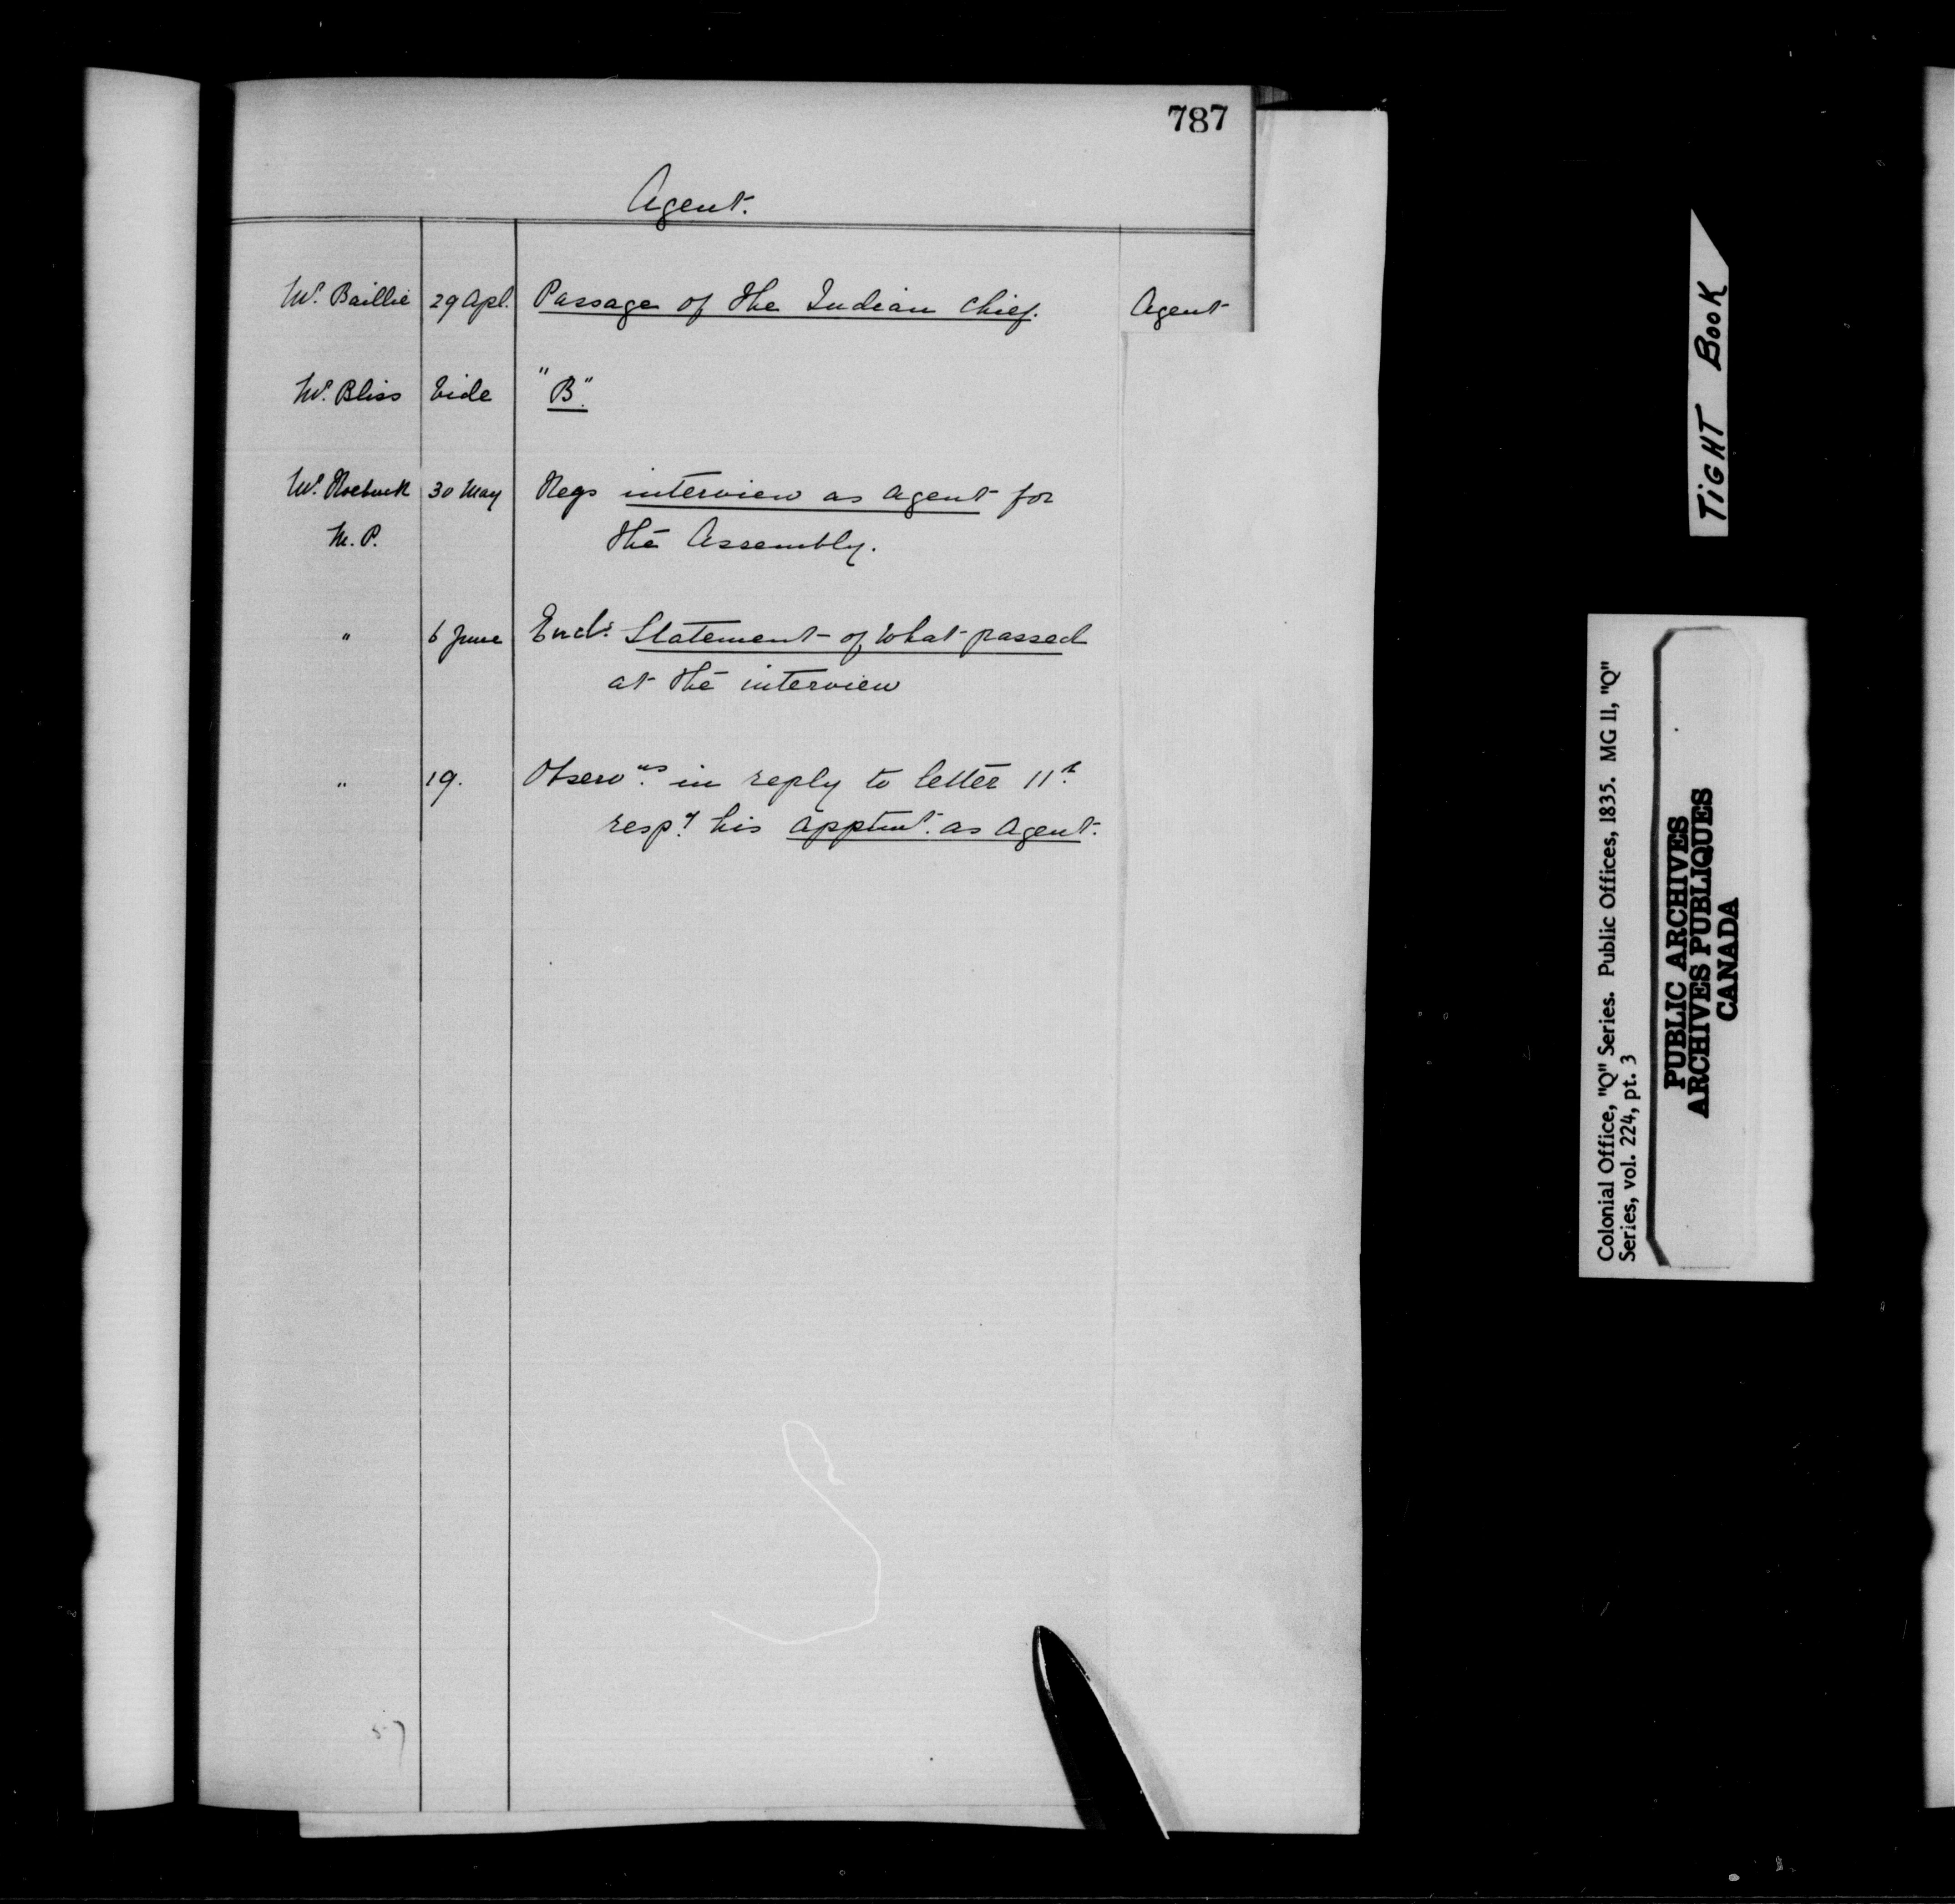 787
Agent.
Mr. Baillie 29 Apl. Passage of the Indian Chief. Agent
Mr. Bliss Vide "B."
Mr. Roebuck 30 May Reqs interview as Agent for
M.P. the Assembly.
" 6 June Encls. Statement of what passed
at the interview
" 19. Observns. in reply to letter 11th.
respg. his apptmt. as Agent.
TIGHT BOOK
Colonial Office, "Q" Series. Public Offices, 1835. MG 11, "Q"
Series, vol. 224, pt. 3
PUBLIC ARCHIVES
ARCHIVES PUBLIQUES
CANADA